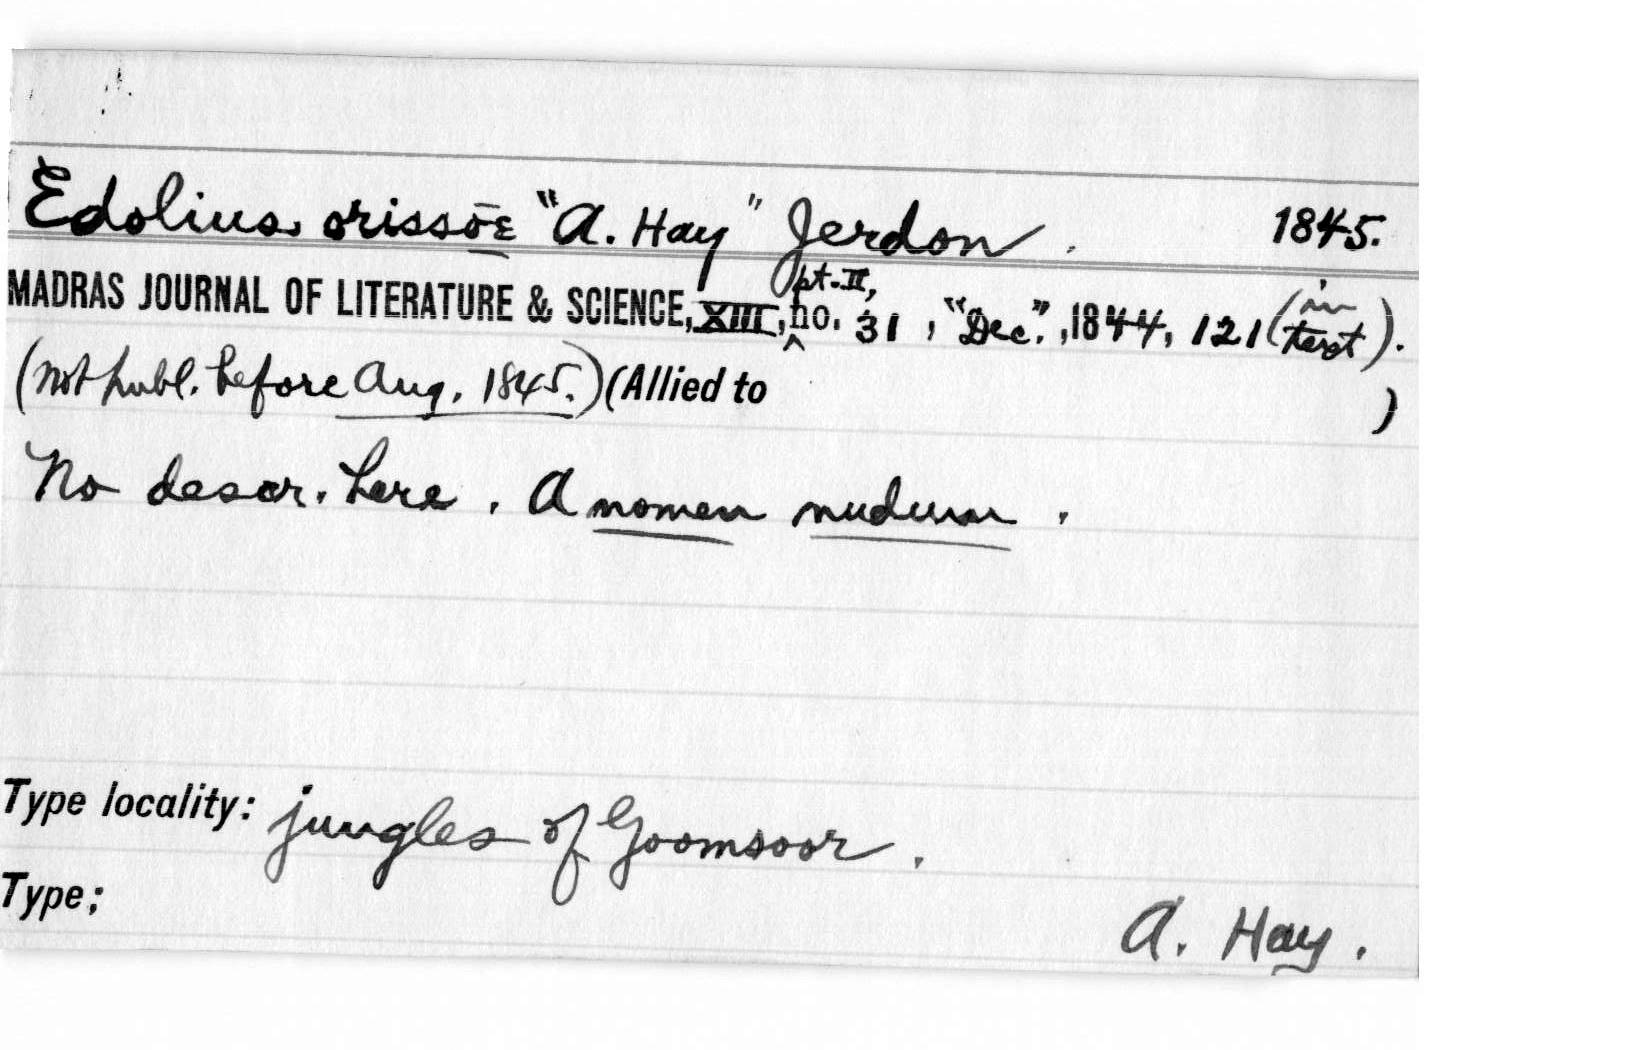 Edolius orissœ "A. Hay" Jerdon. 1845.
MADRAS JOURNAL OF LITERATURE & SCIENCE, XIII, pt. II, no. 31, "Dec.", 1844, 121 (in text).
(Not publ. before Aug. 1845.) (Allied to )
No descr. here. A nomen nudum.
Type locality: jungles of Goomsoor.
Type:
A. Hay.